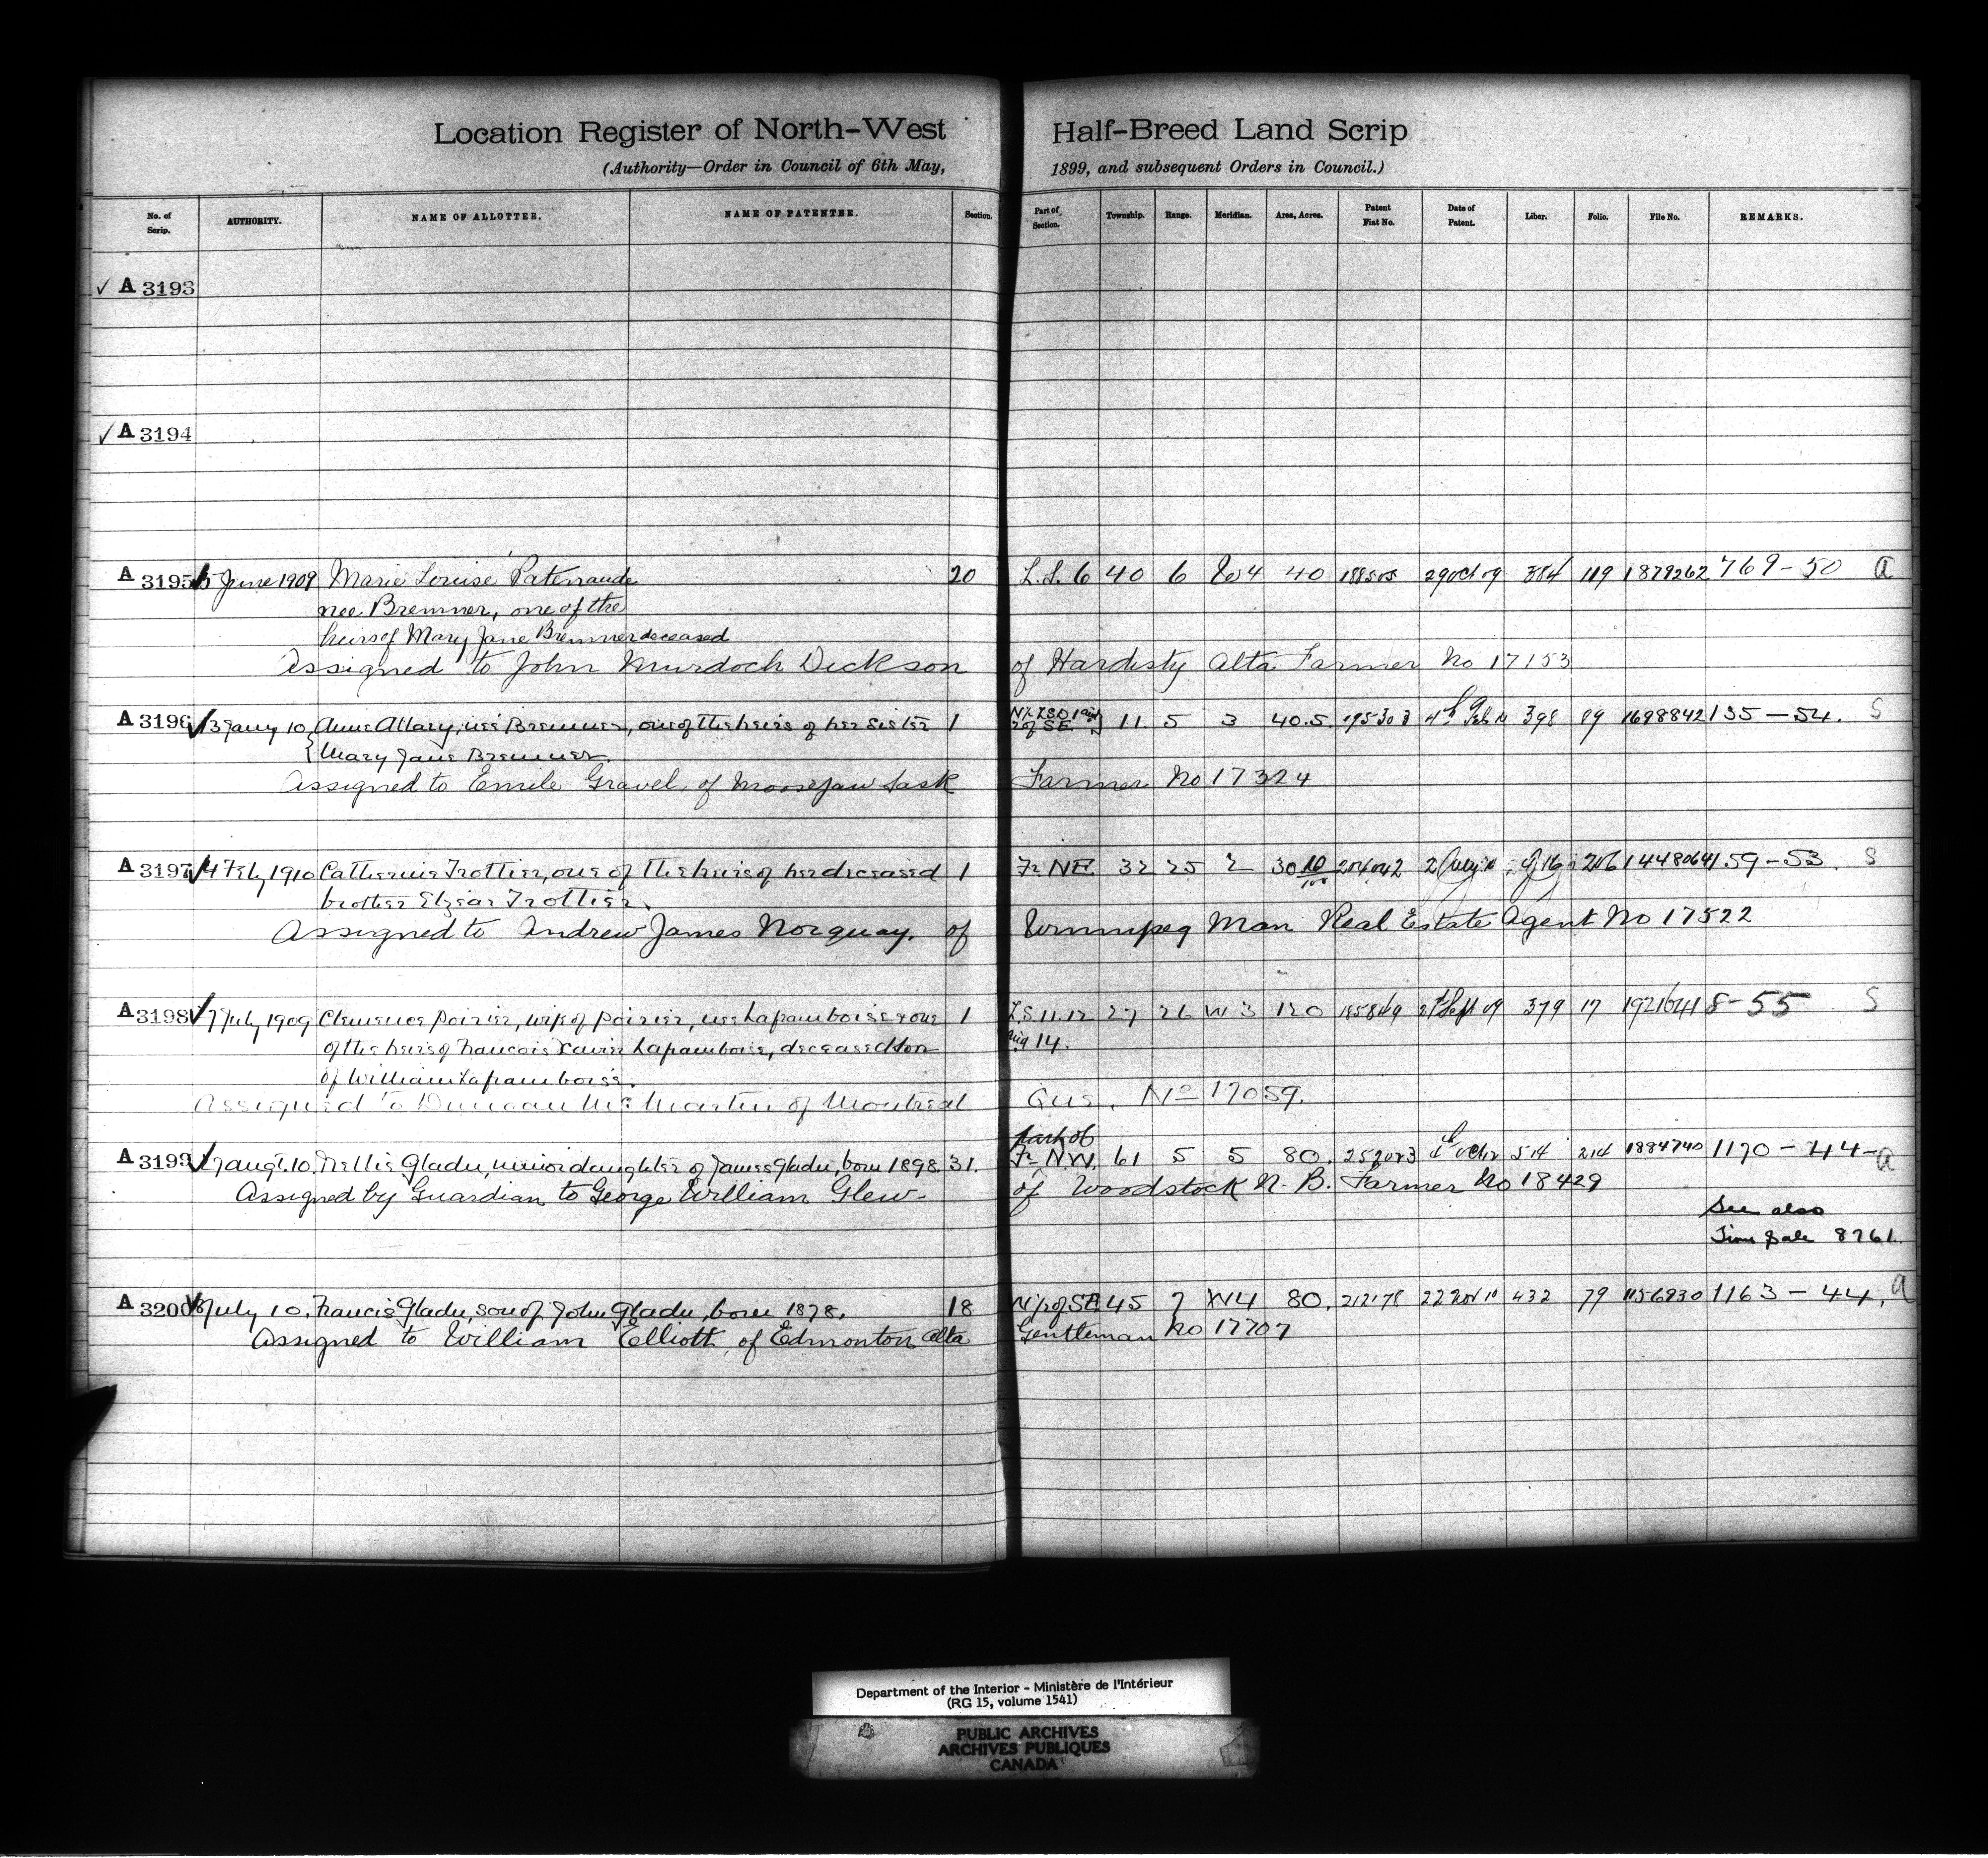 Location Register of North-West Half-Breed Land Scrip
(Authority—Order in Council of 6th May, 1899, and subsequent Orders in Council.)
No. of Scrip. AUTHORITY. NAME OF ALLOTTEE. NAME OF PATENTEE. Section. Part of Section. Township. Range. Meridian. Area, Acres. Patent Fiat No. Date of Patent. Liber. Folio. File No. REMARKS.
✓ A 3193
✓ A 3194
A 3195 June 1909 Marie Louise Patenaude 20 L.S. 6 40 6 W4 40 188505 29 Oct 09 384 119 1879262 769-50 a
nee Bremner, one of the
heirs of Mary Jane Bremner deceased
Assigned to John Murdoch Dickson of Hardisty Alta Farmer No 17153
A 3196 ✓ 13 Jany 10 Anne Allary, née Bremner, one of the heirs of her sister 1 11 5 3 40.5 195303 398 89 1698842 135-54. S
Mary Jane Bremner.
Assigned to Emile Gravel of Moosejaw Sask Farmer No 17324
A 3197 ✓ 4 Feby 1910 Catherine Trottier, one of the heirs of her deceased 1 Fr NE 32 25 2 30 10/100 204042 206 1448064 159-53. S
brother Elzéar Trottier.
Assigned to Andrew James Norquay, of Winnipeg Man Real Estate Agent No 17522
A 3198 ✓ 7 July 1909 Clemence Poirier, wife of Poirier, nee Laframboise & one 1 L.S. 11.12 27 26 W 3 120 185849 Sept 09 379 17 1921641 8-55 S
of the heirs of Francois Xavier Laframboise, deceased son and 14.
of William Laframboise.
Assigned to Duncan McMartin of Montreal Que. No 17059.
part of
A 3199 ✓ 17 augt. 10. Nellie Gladu, minor daughter of James Gladu, born 1898. 31. Fr N.W. 61 5 5 80. 252023 514 214 1884740 1170-44- a
Assigned by Guardian to George William Glew of Woodstock N. B. Farmer No 18429
See also
Sale 8761.
A 3200 ✓ July 10. Francis Gladu, son of John Gladu, born 1878. 18 N½ of SE 45 7 W4 80. 212178 22 Nov 10 432 79 1156930 1163-44. a
Assigned to William Elliott, of Edmonton Alta Gentleman No 17707
Department of the Interior - Ministère de l'Intérieur
(RG 15, volume 1541)
PUBLIC ARCHIVES
ARCHIVES PUBLIQUES
CANADA